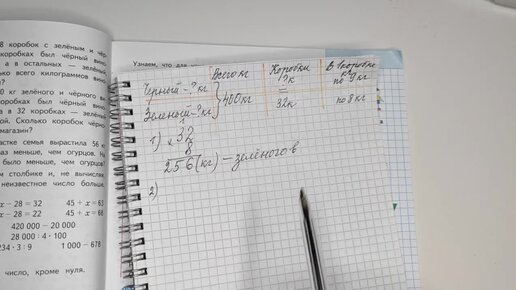 8 коробок с зелёным и чёр-
коробках был чёрный вино-
а в остальных — зелёный,
лько всего килограммов вино-
0 кг зелёного и чёрного ви-
коробках был чёрный вино-
а в 32 коробках — зелёный
ой. Сколько коробок чёрно-
магазин?
стке семья вырастила 56 к
аз меньше, чем огурцов. Ну
было меньше, чем огурцов?
столбике и, не вычисляя,
неизвестное число больше.
x − 28 = 32 45 + x = 63
x − 28 = 22 45 + x = 68
420 000 − 20 000
28 000 : 4 · 100
234 · 3 : 9 1 000 − 678
число, кроме нуля.
Узнаем, что для
Всего кг Коробки В 1 коробке кг
Чёрный - ? кг ? к по 9 кг
400 кг
Зеленый - ? кг 32 к по 8 кг
1) 32
× 8
256 (кг) — зелёного в
2)